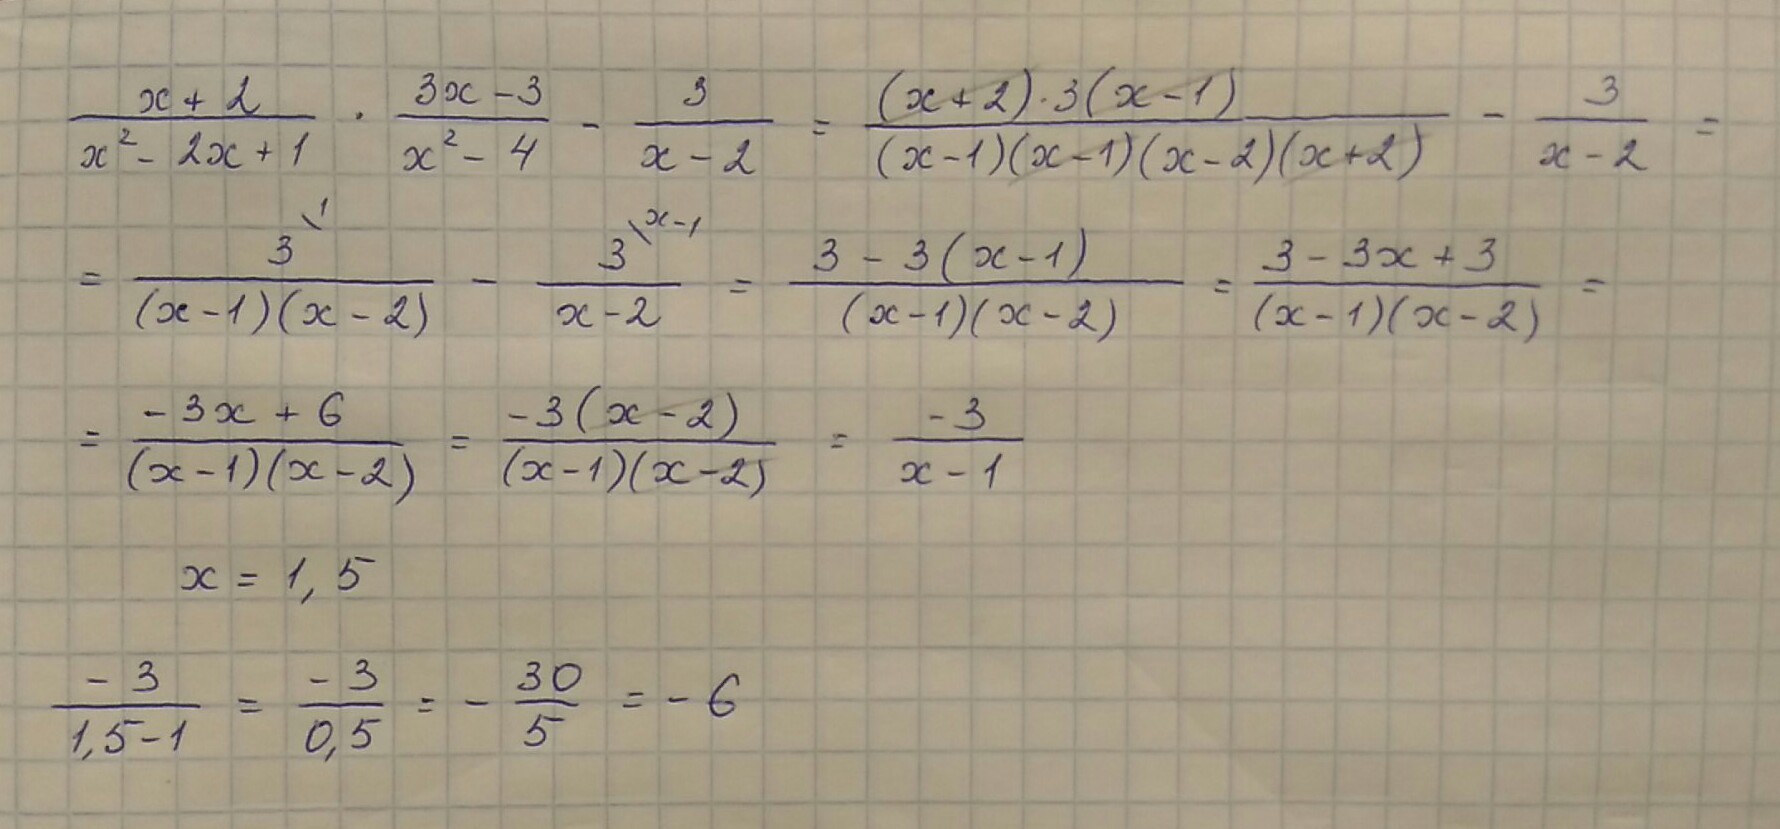 (x+2)/(x²-2x+1) · (3x-3)/(x²-4) - 3/(x-2) = ((x+2)·3(x-1))/((x-1)(x-1)(x-2)(x+2)) - 3/(x-2) =
= 3\1/((x-1)(x-2)) - 3\x-1/(x-2) = (3-3(x-1))/((x-1)(x-2)) = (3-3x+3)/((x-1)(x-2)) =
= (-3x+6)/((x-1)(x-2)) = (-3(x-2))/((x-1)(x-2)) = -3/(x-1)
x = 1,5
-3/(1,5-1) = -3/0,5 = - 30/5 = -6